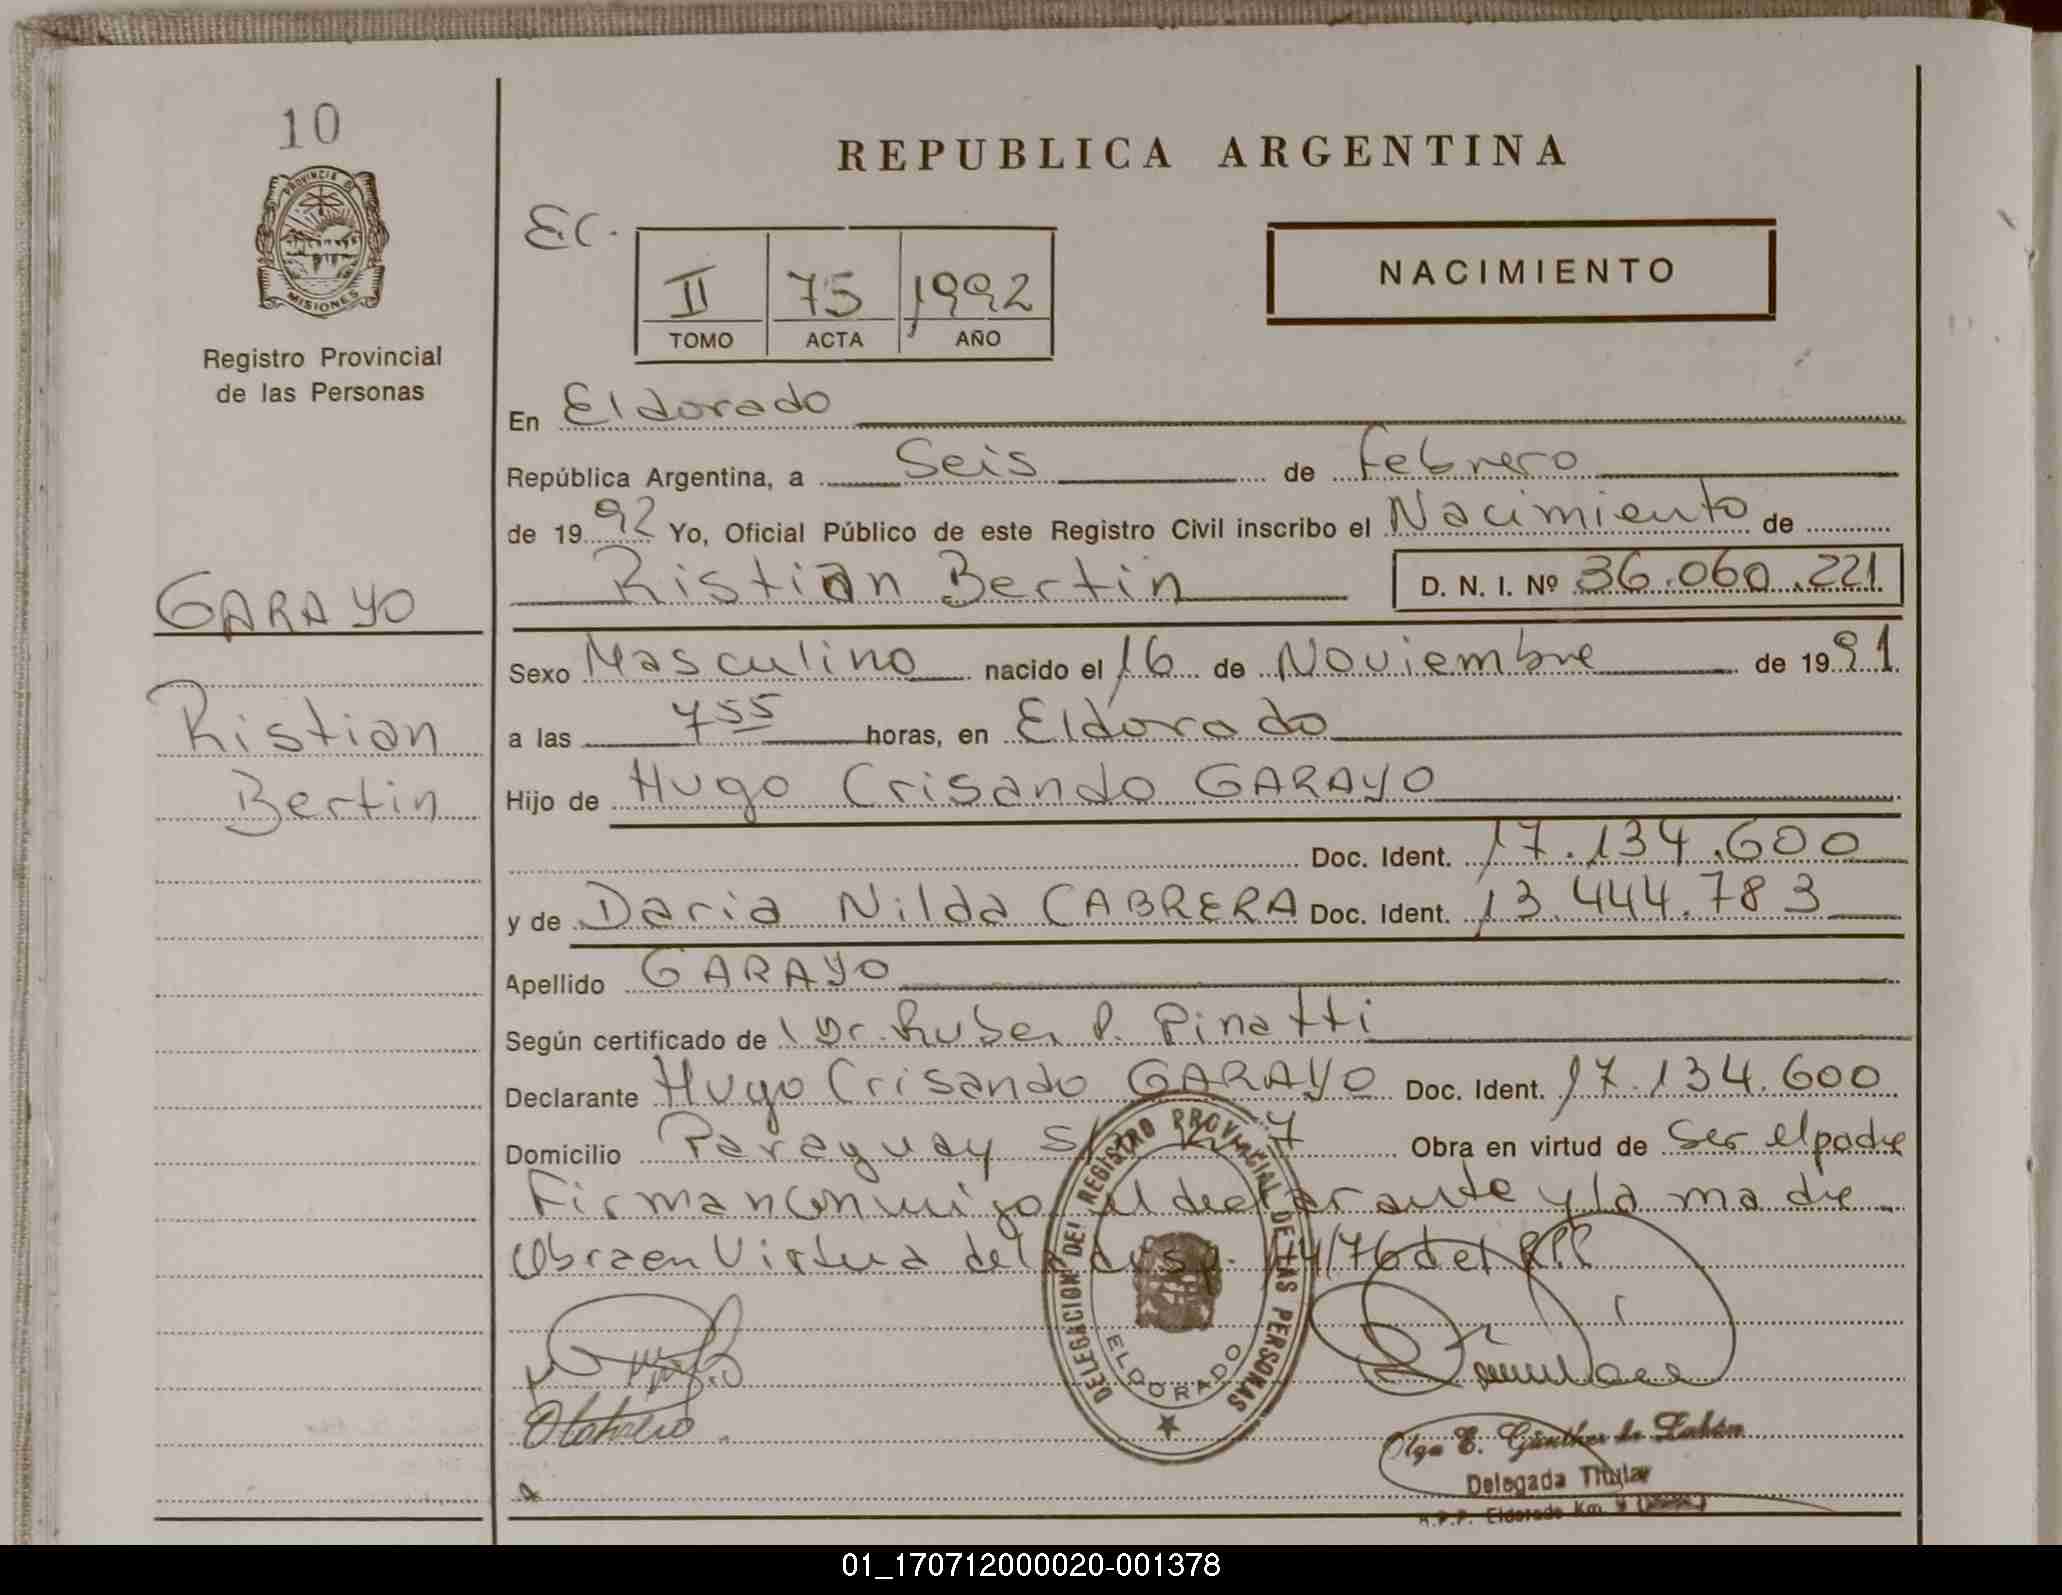 10
PROVINCIA DE
MISIONES
Registro Provincial
de las Personas
GARAYO
Ristian
Bertin
REPUBLICA ARGENTINA
EC.
II 75 1992
TOMO ACTA AÑO
NACIMIENTO
En Eldorado
República Argentina, a Seis de Febrero
de 1992 Yo, Oficial Público de este Registro Civil inscribo el Nacimiento de
Ristian Bertin D. N. I. Nº 36.060.221
Sexo Masculino nacido el 16 de Noviembre de 1991.
a las 755 horas, en Eldorado
Hijo de Hugo Crisando GARAYO
Doc. Ident. 17.134.600
y de Daria Nilda CABRERA Doc. Ident. 13.444.783
Apellido GARAYO
Según certificado de Dr. Ruben P. Pinatti
Declarante Hugo Crisando GARAYO Doc. Ident. 17.134.600
Domicilio Paraguay S/ 7 Obra en virtud de Ser el padre
Firman conmigo el declarante y la madre
Obra en Virtud de la disp. /76 del RPP
DELEGACION DEL REGISTRO PROVINCIAL DE LAS PERSONAS
ELDORADO
Olga E. Günther de
Delegada Titular
R.P.P. Eldorado Km. 9
01_170712000020-001378